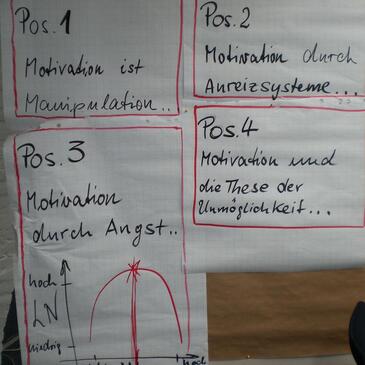 Pos. 1
Motivation ist
Manipulation..
Pos. 2
Motivation durch
Anreizsysteme...
Pos. 3
Motivation
durch Angst..
Pos. 4
Motivation und
die These der
Unmöglichkeit...
hoch
LN
niedrig
hoch